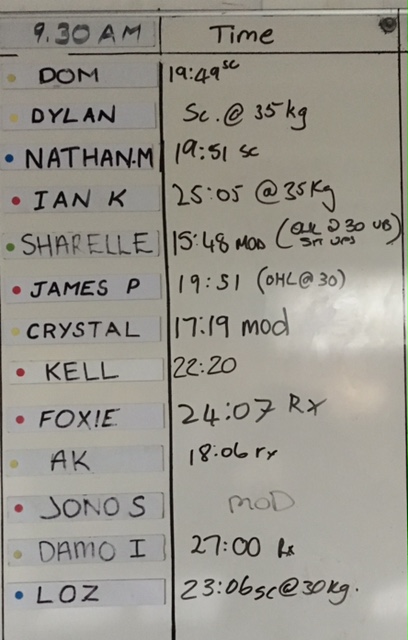 9.30 AM Time
DOM 19:49 sc
DYLAN Sc. @ 35 kg
NATHAN.M 19:51 sc
IAN K 25:05 @35Kg
SHARELLE 15:48 MOD (OHL @ 30 UB
SIT UPS)
JAMES P 19:51 (OHL@30)
CRYSTAL 17:19 mod
KELL 22:20
FOXIE 24:07 Rx
AK 18:06 rx
JONO S MOD
DAMO I 27:00 Rx
LOZ 23:06 sc@30kg.